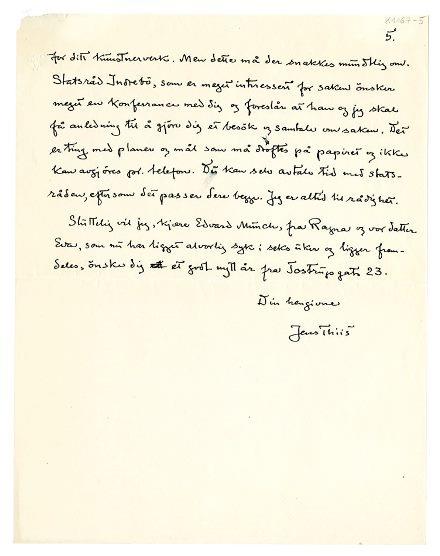 K 1167-5
5.
for ditt kunstnerverk. Men dette må der snakkes mundtlig om.
Statsråd Indrebö, som er meget intressert for saken önsker
meget en konferranse med dig og foreslår at han og jeg skal
få anledning til å gjöre dig et besök og samtale om saken. Det
er ting med planer og mål som må dröftes på papiret og ikke
kan avgjöres pr. telefon. Du kan selv avtale tid med stats-
råden, eftersom det passer dere begge. Jeg er altid til rådighet.
Sluttelig vil jeg, kjære Edvard Munch, fra Ragna og vor datter
Eva, som nu har ligget alvorlig syk i seks uker og ligger frem-
deles, önske dig et godt nytt år fra Tostrups gate 23.
Din hengivne
Jens Thiis